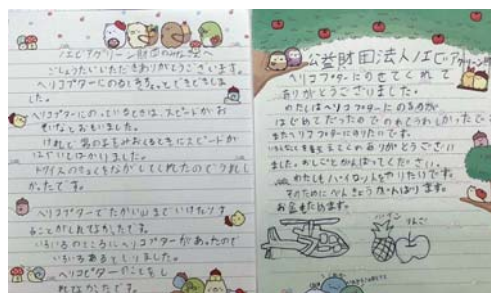 ノエビアグリーン財団のみなさまへ
ごしょうたいいただきありがとうございます。
ヘリコプターにのるときちょっとどきどきしま
した。
ヘリコプターにのっているときは、スピードがお
そいなとおもいました。
けれど、
おくるときにスピードが
はやいとわかりました。
ながしてくれたのでうれし
かったです。
ヘリコプターでたかい山までいけたりす
ることがしれてよかったです。
いろいろのところにヘリコプターがあったので
いろいろあるとしりました。
ヘリコプターのことをし
れてよかったです。
公益財団法人ノエビアグリーン財団
ヘリコプターにのせてくれて
ありがとうございました。
わたしはヘリコプターにのるのが
はじめてだったのでのれてうれしかったです。
またヘリコプターにのりたいです。
いろんなことを教えてくれてありがとうござい
ました。おしごとがんばってください。
わたしもパイロットをやりたいです。
そのためにべんきょうがんばります。
お金もためます。
パイン
りんご